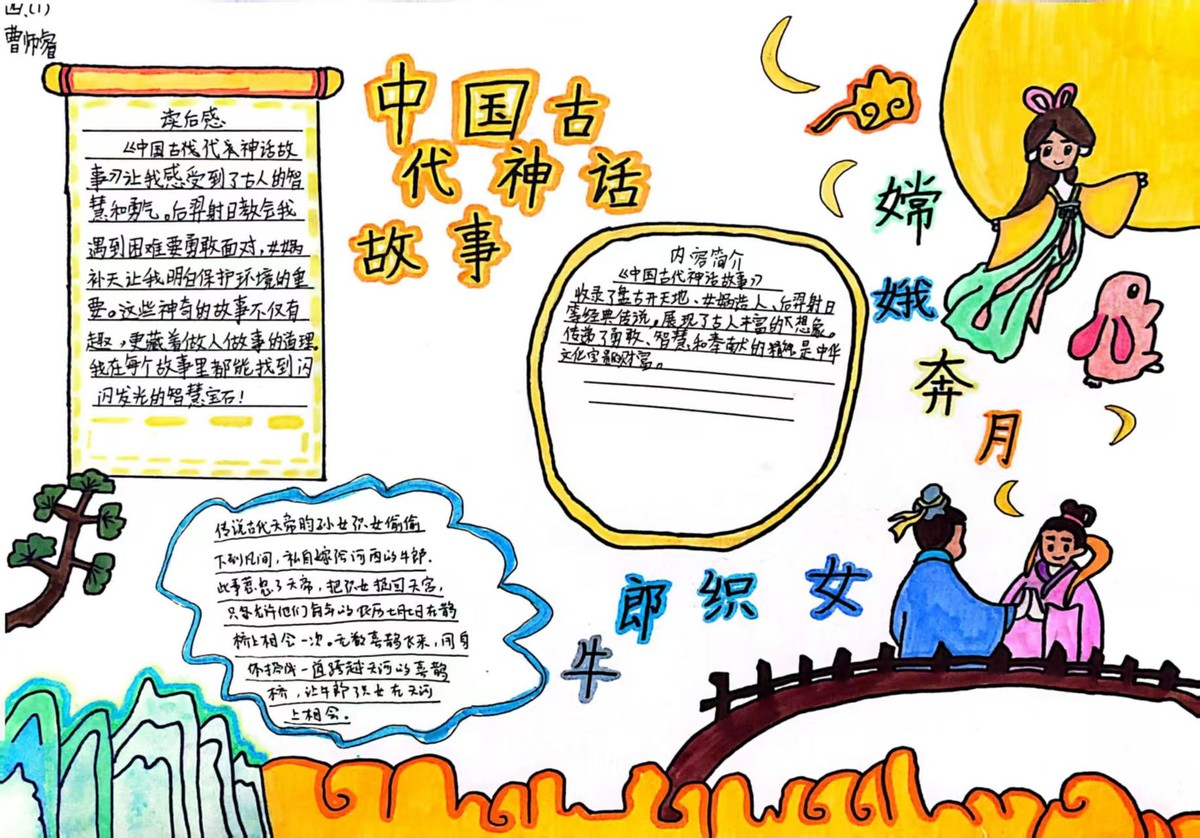 四、(1)
曹师睿
中国古
代神话
故事
读后感
《中国古代代系神话故
事》让我感受到了古人的智
慧和勇气。后羿射日教会我
遇到困难要勇敢面对,女娲
补天让我明白保护环境的重
要。这些神奇的故事不仅有
趣,更藏着做人做故事的道理。
我在每个故事里都能找到闪
闪发光的智慧宝石!
内容简介
《中国古代神话故事》
收录了盘古开天地、女娲造人、后羿射日
等经典传说。展现了古人丰富的想象。
传递了勇敢、智慧和奉献的精神是中华
文化宝的财富。
嫦
娥
奔
月
传说古代天帝的孙女织女偷偷
下到凡间,私自嫁给河西的牛郎.
此事惹怒了天帝,把织女捉回天宫,
只允许他们每年的农历七月七日在鹊
桥上相会一次。无数喜鹊飞来,用身
体搭成一道跨越天河的喜鹊
桥,让牛郎织女在天河
上相会。
牛郎织女